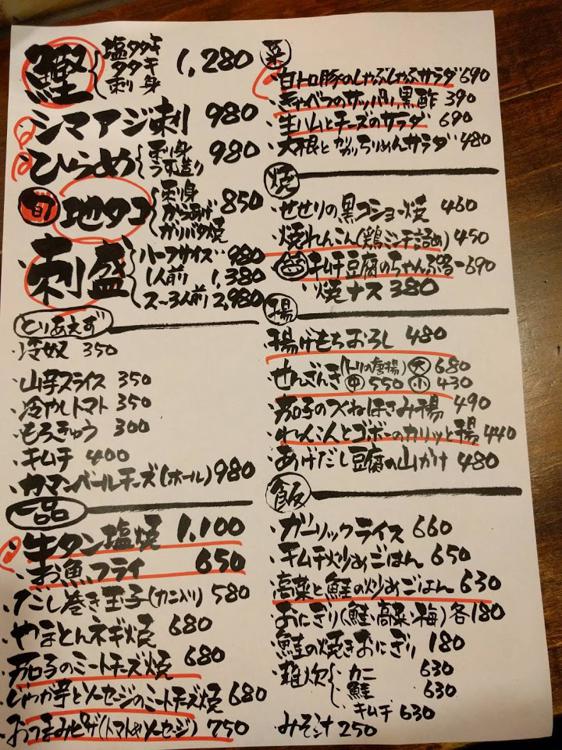 鰹 塩タタキ タタキ 刺身 1,280
シマアジ刺 980
ひらめ 刺身 うす造り 980
旬 地タコ 刺身 からあげ ガリバタ焼 850
刺盛 ハーフサイズ 980
1人前 1,380
2〜3人前 2,980
とりあえず
・冷奴 350
・山芋スライス 350
・冷やしトマト 350
・もろきゅう 300
・キムチ 400
・カマンベールチーズ(ホール) 980
一品
・牛タン塩焼 1,100
・お魚フライ 650
・だし巻き玉子(カニ入り) 580
・やまとんネギ焼 680
・茄子のミートチーズ焼 680
・じゃが芋とソーセージのミートチーズ焼 680
・おつまみピザ(トマトorソーセージ) 750
菜
・白トロ豚のしゃぶしゃぶサラダ 690
・キャベツのサッパリ黒酢 390
・生ハムとチーズのサラダ 690
・大根とカリッちりめんサラダ 480
焼
・せせりの黒コショー焼 460
・焼れんこん(鶏ミンチ詰め) 450
・キムチ豆腐のちゃんぷるー 690
・焼ナス 380
揚
・揚げもちおろし 480
・せんざんき(トリの唐揚) 大 680
中 550 小 430
・茄子のはさみ揚 490
・れんこんとゴボーのカリッと揚 440
・あげだし豆腐の山かけ 480
飯
・ガーリックライス 660
・キムチ炒めごはん 650
・高菜と鮭の炒めごはん 630
・おにぎり(鮭・高菜・梅)各180
・鮭の焼きおにぎり 180
・雑炊 カニ 630
・鮭 630
・キムチ 630
・みそ汁 250